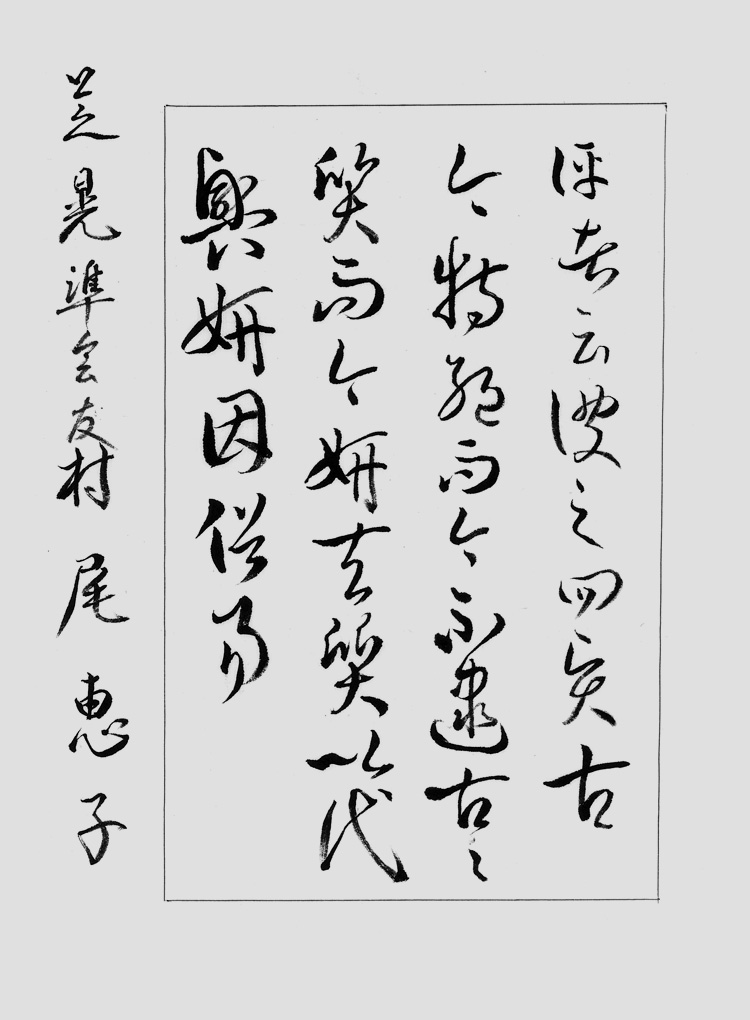 評者云彼之四賢古
今特絶而今不逮古〻
質而今妍夫質以代
興妍因俗易
芝晃準会友村尾恵子